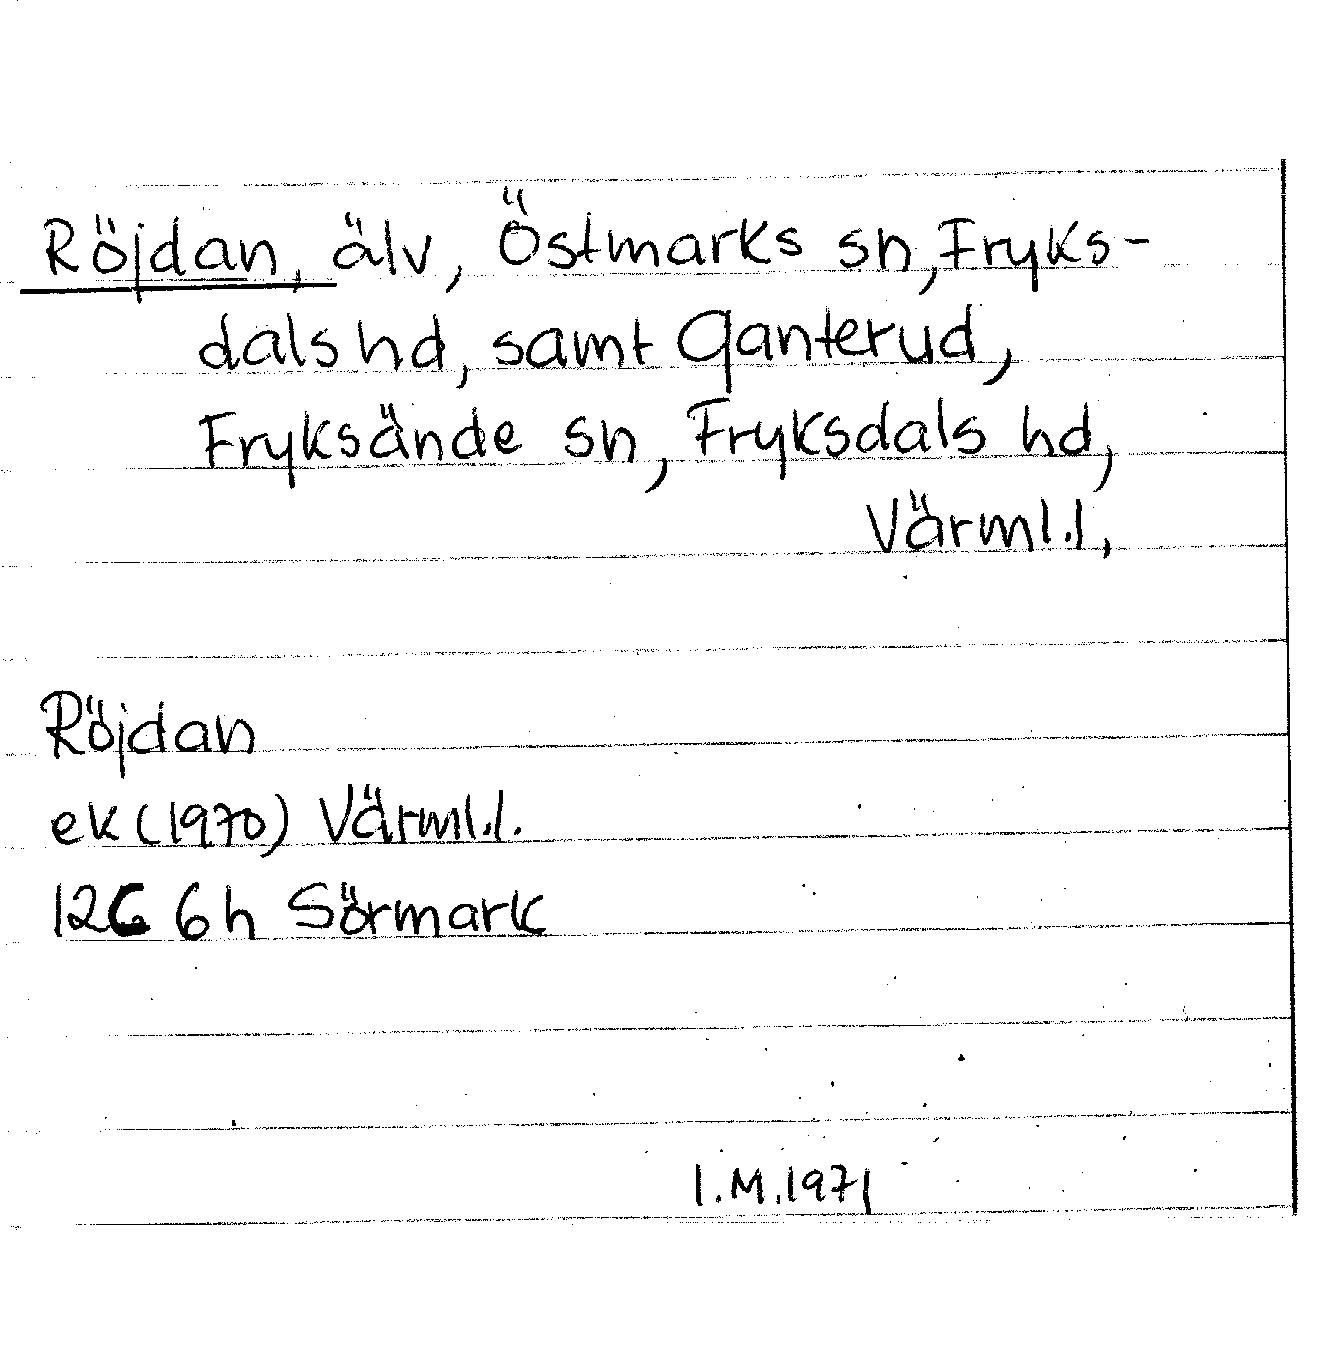 Röjdan, älv, Östmarks sn, Fryks-
dals hd, samt Qanterud,
Fryksände sn, Fryksdals hd,
Värml.l,
Röjdan
ek (1970) Värml.l.
12C 6h Sörmark
I.M.1971